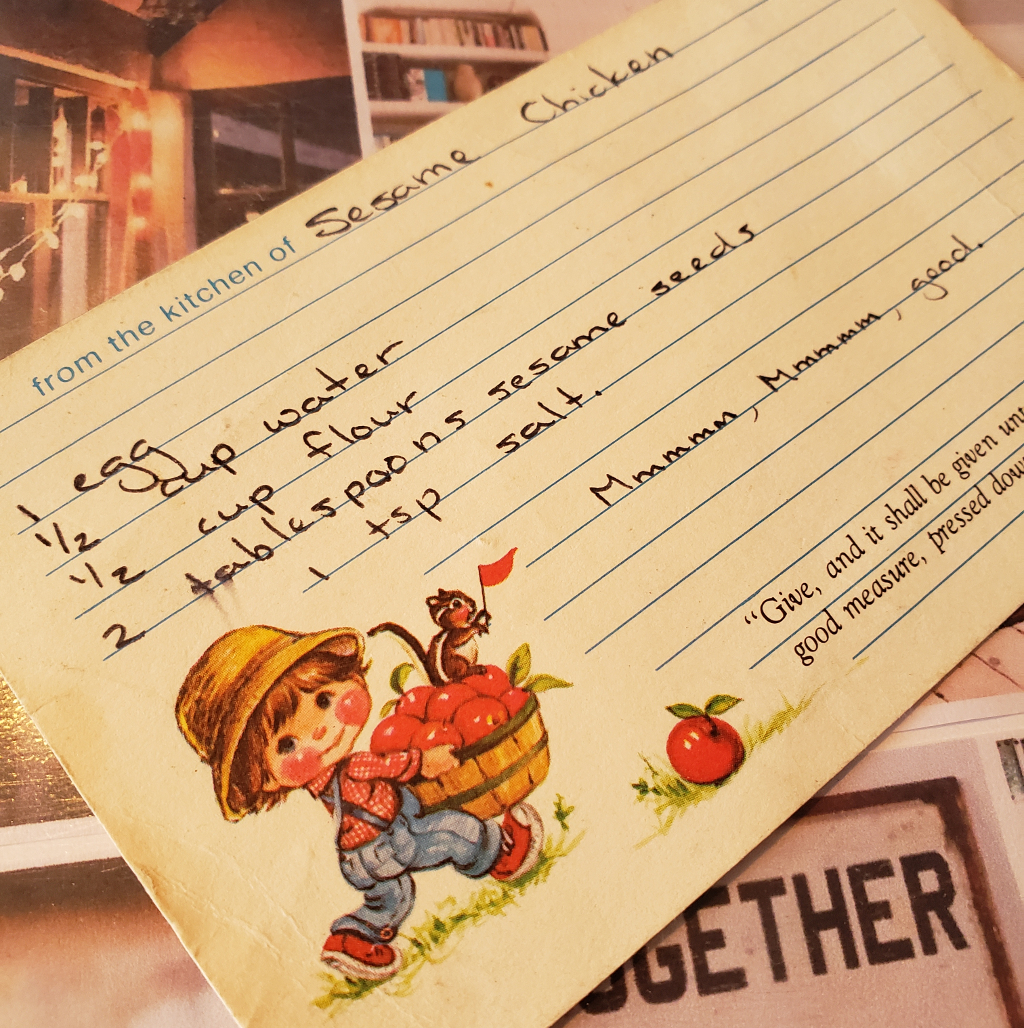 from the kitchen of Sesame Chicken
1 egg
1/2 cup water
1/2 cup flour
2 tablespoons sesame seeds
1 tsp salt.
Mmmmm, Mmmmmm, good.
"Give, and it shall be given
good measure, pressed down
OGETHER